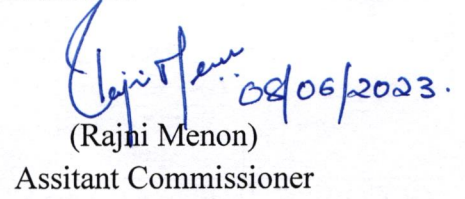 Rajni Menon
08/06/2023.
(Rajni Menon)
Assitant Commissioner